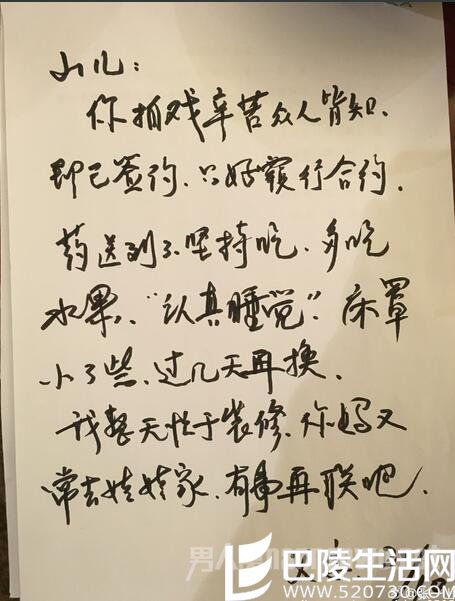 山儿：
你拍戏辛苦众人皆知.
即已签约.只好履行合约.
药送到了.坚持吃.多吃
水果."认真睡觉".床罩
小了些.过几天再换.
我整天忙于装修.你妈又
常去娃娃家.有事再联吧.
男人
巴陵生活网
www.520730.com